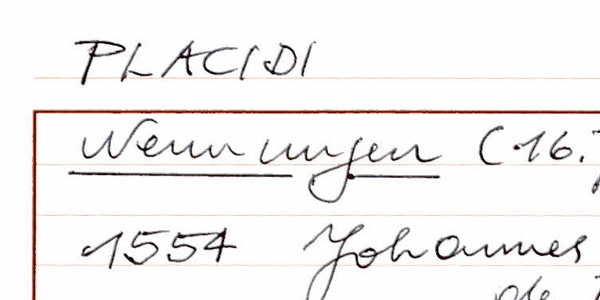 PLACIDI
Nennungen (16.
1554 Johannes
de